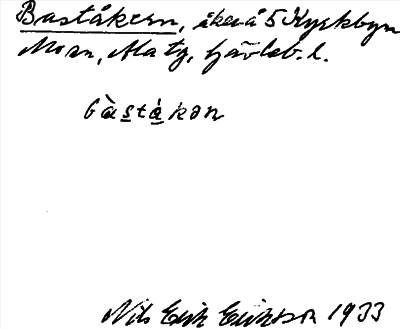 Baståkern, åker å 5 Kyrkbyn
Mo sn, Ala tg, Gävleb. l.
bàståkən
Nils Erik Eriksson 1933